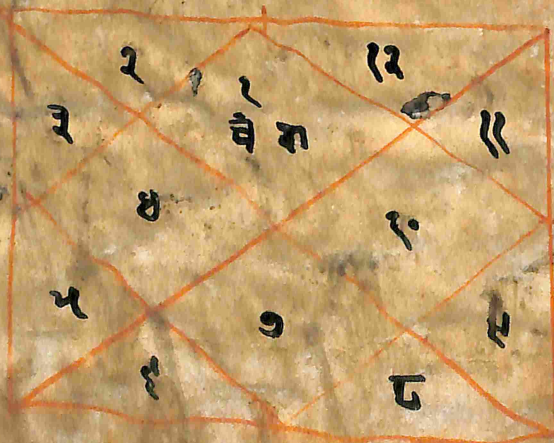 २ १ १२
३ चं मा ११
४ १०
५ ७ ९
६ ८